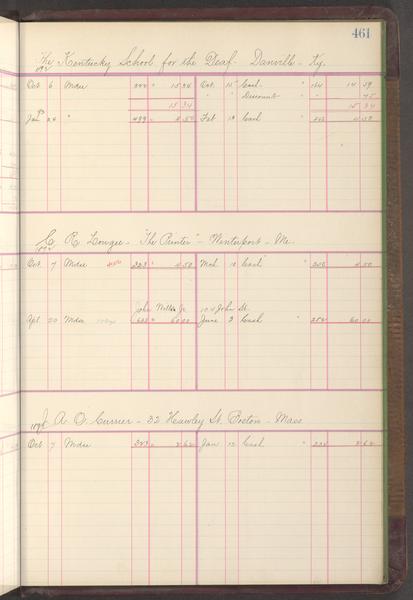 461
The Kentucky School for the Deaf - Danville - Ky.
Oct 6 Mdse " 15 34 Oct 15 Cash " 164 14 59
" " Discount " " 75
15 34 15 34
Jan 24 " 499 " 4 50 Feb 19 Cash " 4 50
C. R. Lougee - "The Printer" - Winterport - Me.
Oct 7 Mdse 323 " 4 50 Mch 10 Cash " 4 50
John Jr 104 John St.
Apl 20 Mdse " 60 00 June 2 Cash " 60 00
A. O. Currier - 32 Hawley St. Boston - Mass
Oct 7 Mdse 323 " 2 62 Jan 12 Cash " 2 62